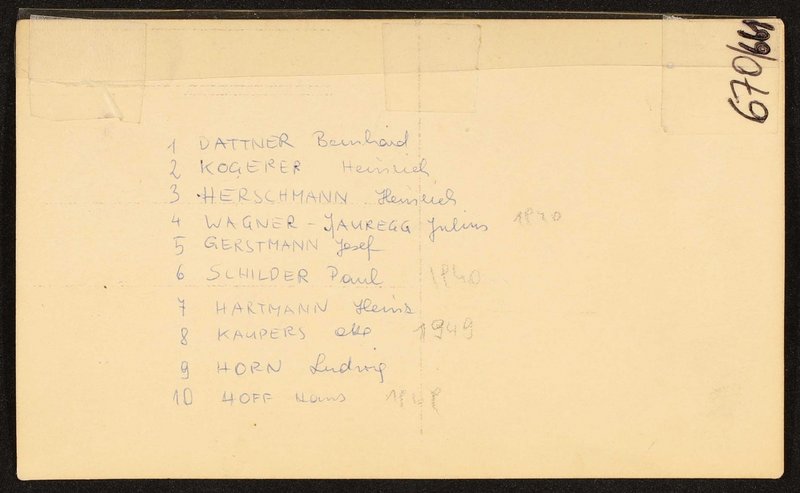 670/664
1 DATTNER Bernhard
2 KOGERER Heinrich
3 HERSCHMANN Heinrich
4 WAGNER-JAUREGG Julius 1940
5 GERSTMANN Josef
6 SCHILDER Paul 1940
7 HARTMANN Heinz
8 KAUPERS Otto 1949
9 HORN Ludwig
10 HOFF Hans